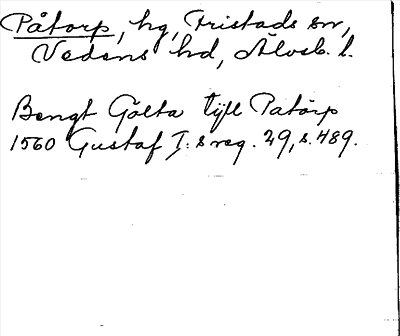 Påtorp, hg, Fristads sn,
Vedens hd, Älvsb. l.
Bengt Gölta tyfl Patörp
1560 Gustaf I:s reg. 29, s. 489.